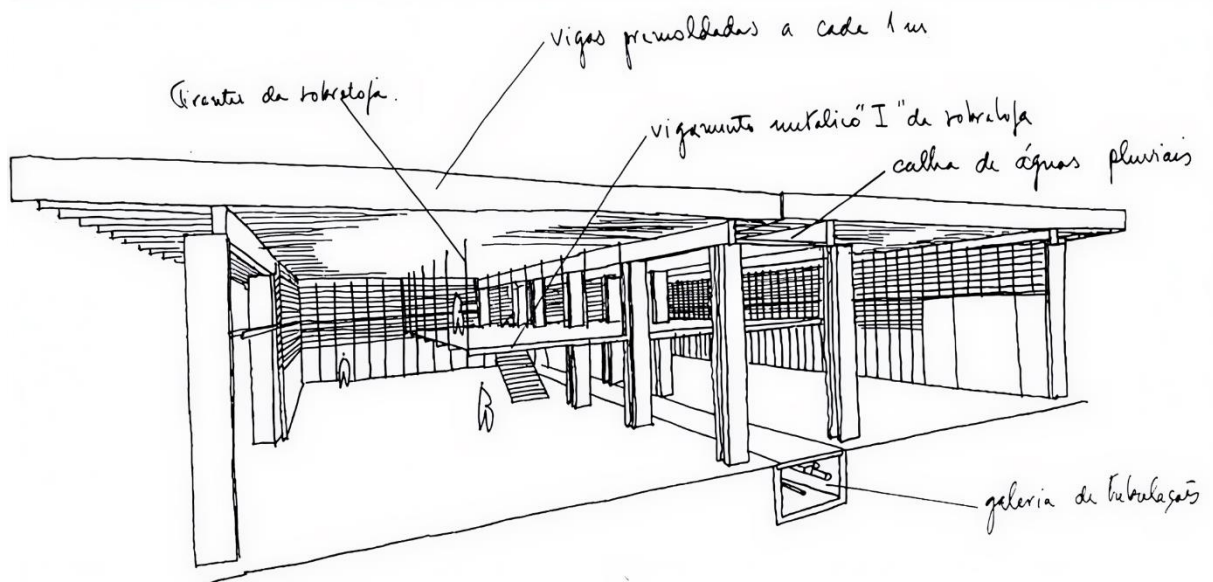 vigas premoldadas a cada 1 m
Tirantes da sobreloja.
vigamento metalico "I" da sobreloja
calha de águas pluviais
galeria de tubulações